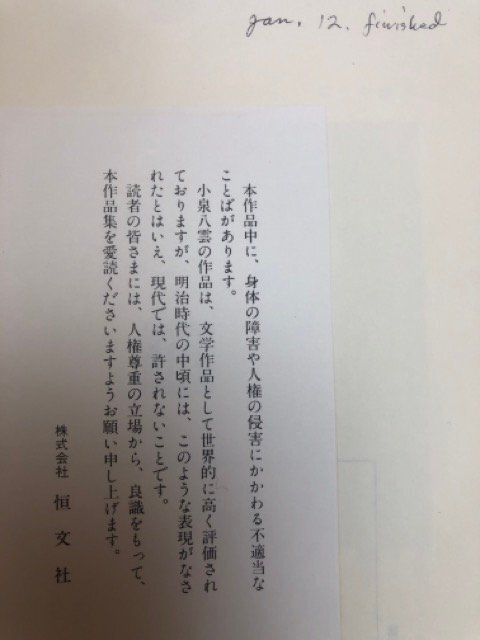 Jan. 12. finished
本作品中に、身体の障害や人権の侵害にかかわる不適当な
ことばがあります。
小泉八雲の作品は、文学作品として世界的に高く評価され
ておりますが、明治時代の中頃には、このような表現がなさ
れたとはいえ、現代では、許されないことです。
読者の皆さまには、人権尊重の立場から、良識をもって、
本作品集を愛読くださいますようお願い申し上げます。
株式会社 恒文社